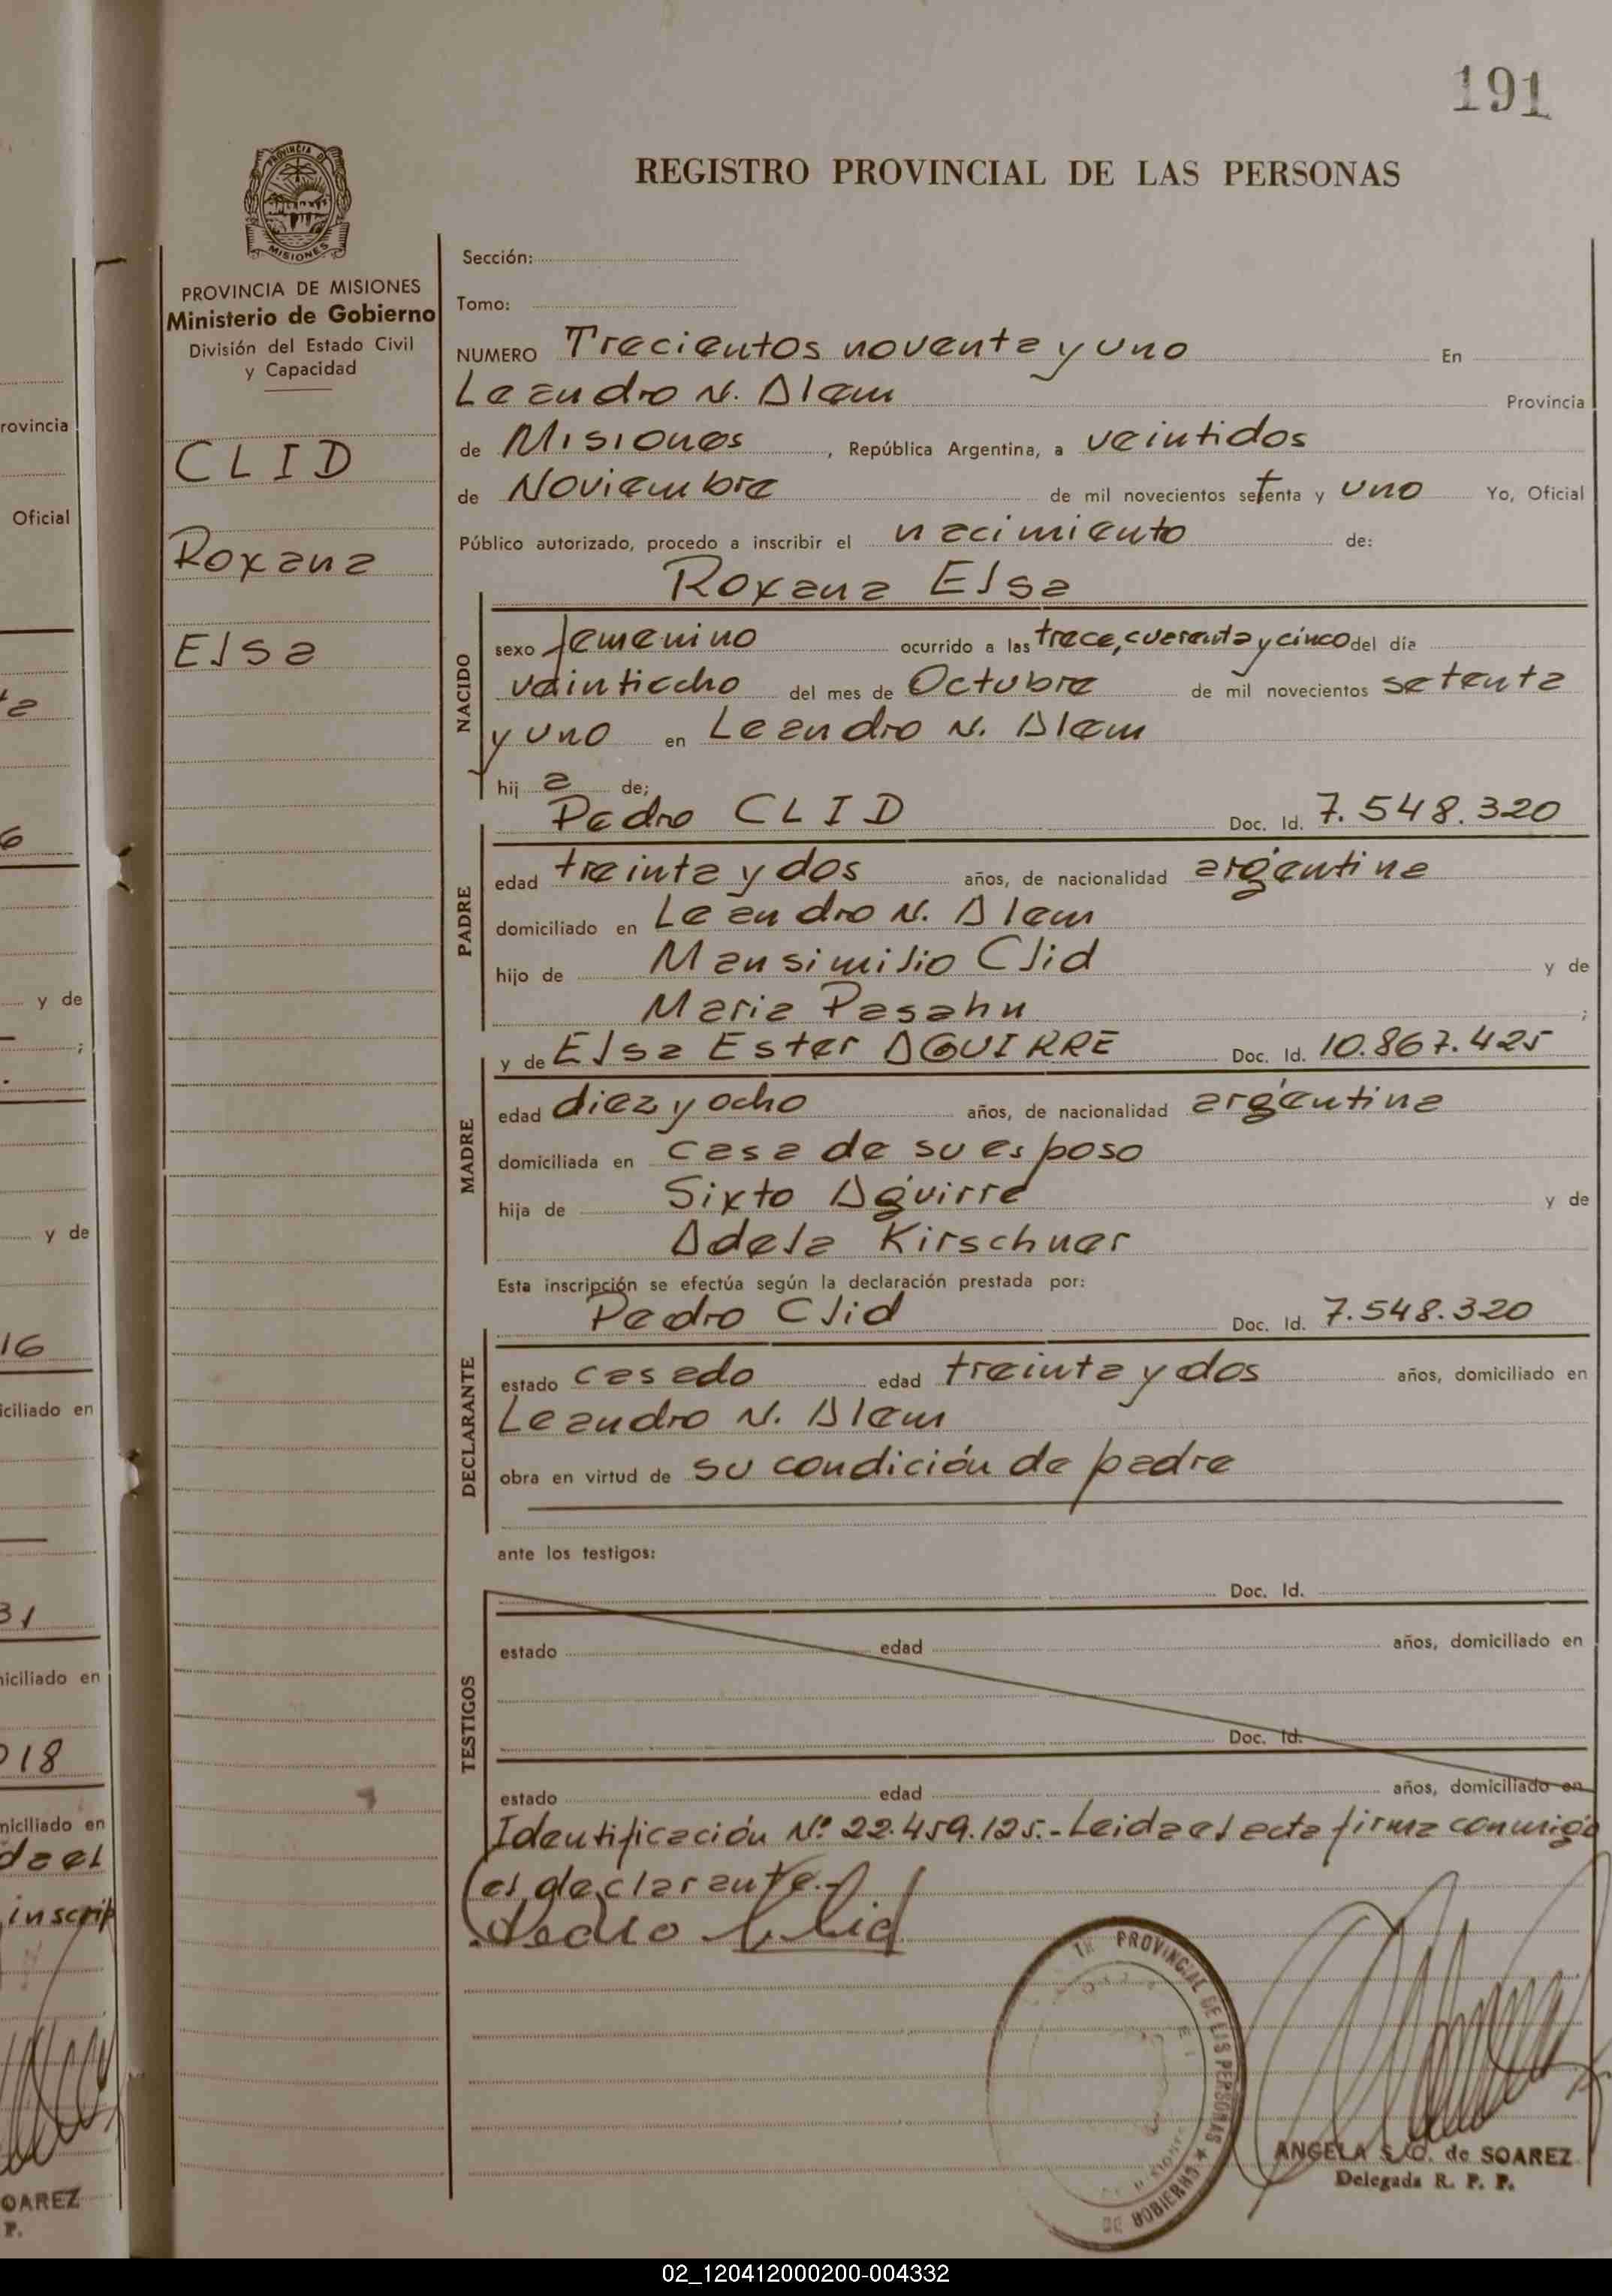 191
REGISTRO PROVINCIAL DE LAS PERSONAS
PROVINCIA DE MISIONES
Ministerio de Gobierno
División del Estado Civil
y Capacidad
CLID
Roxana
Elsa
Sección:
Tomo:
NUMERO Trecientos noventa y uno En
Leandro N. Alem Provincia
de Misiones, República Argentina, a veintidos
de Noviembre de mil novecientos setenta y uno Yo, Oficial
Público autorizado, procedo a inscribir el nacimiento de:
Roxana Elsa
NACIDO
sexo femenino ocurrido a las trece, cuarenta y cinco del día
veintiocho del mes de Octubre de mil novecientos setenta
y uno en Leandro N. Alem
hij a de;
Pedro CLID Doc. Id. 7.548.320
PADRE
edad treinta y dos años, de nacionalidad argentina
domiciliado en Leandro N. Alem
hijo de Mansimilio Clid y de
Maria Pasahn ;
y de Elsa Ester AGUIRRE Doc. Id. 10.867.425
MADRE
edad diez y ocho años, de nacionalidad argentina
domiciliada en casa de su esposo
hija de Sixto Aguirre y de
Adela Kirschner
Esta inscripción se efectúa según la declaración prestada por:
Pedro Clid Doc. Id. 7.548.320
DECLARANTE
estado casado edad treinta y dos años, domiciliado en
Leandro N. Alem
obra en virtud de su condición de padre
ante los testigos:
Doc. Id.
TESTIGOS
estado edad años, domiciliado en
Doc. Id.
estado edad años, domiciliado en
Identificación Nº 22.459.125.- Leida el acta firma conmigo
el declarante.-
Pedro Clid
PROVINCIAL DE LAS PERSONAS
DE GOBIERNO
ANGELA S. O. de SOAREZ
Delegada R. P. P.
rovincia
Oficial
6
y de
y de
16
iciliado en
31
niciliado en
018
niciliado en
da el
inscrip
OAREZ
P.
02_120412000200-004332